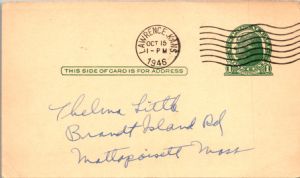 LAWRENCE, KANS.
OCT 15
1-PM
1946
THIS SIDE OF CARD IS FOR ADDRESS
Thelma Little
Brandt Island Rd
Mattapoisett Mass